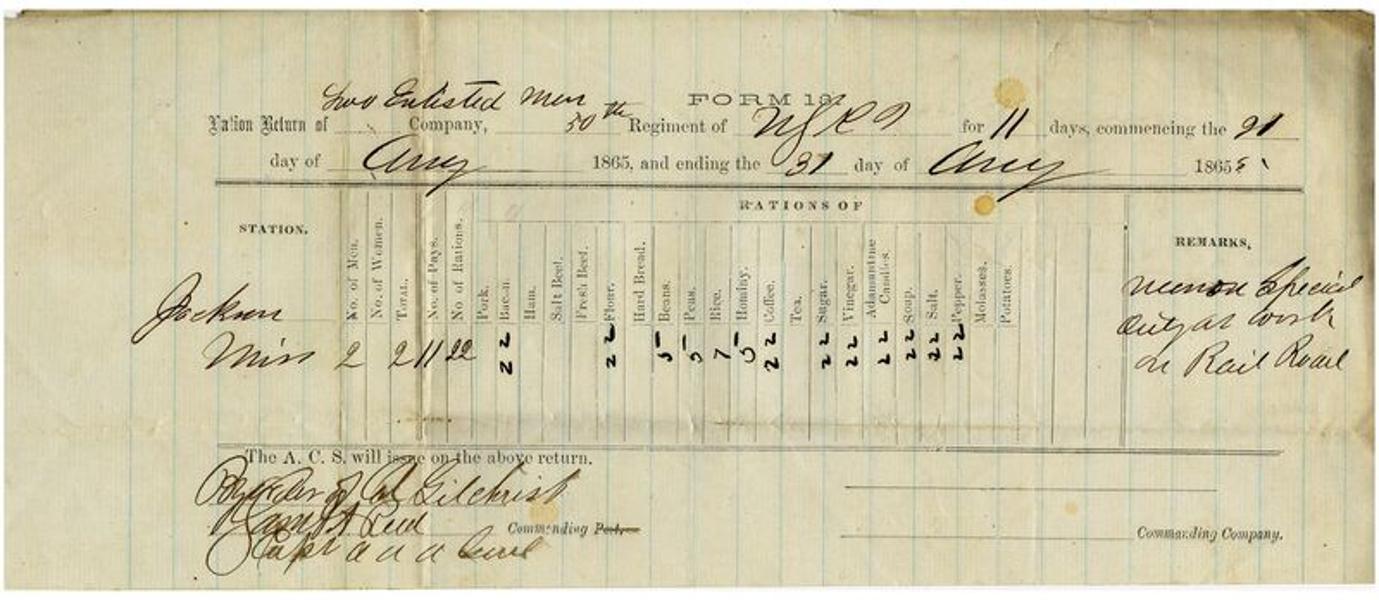 FORM 13
Two Enlisted Men
Ration Return of Company, 50th Regiment of for 11 days, commencing the 21
day of Aug 1865, and ending the 31 day of Aug 1865
RATIONS OF
STATION. No. of Men. No. of Women. Total. No. of Days. No. of Rations. Pork. Bacon. Ham. Salt Beef. Fresh Beef. Flour. Hard Bread. Beans. Peas. Rice. Hominy. Coffee. Tea. Sugar. Vinegar. Adamantine Candles. Soap. Salt. Pepper. Molasses. Potatoes. REMARKS.
Jackson
Miss 2 2 11 22 22 22 5 5 7 5 22 22 22 22 22 22 22
men on Special
duty at work
on Rail Road
The A. C. S. will issue on the above return.
By order of Col Gilchrist
Commanding Post.
Capt
Commanding Company.